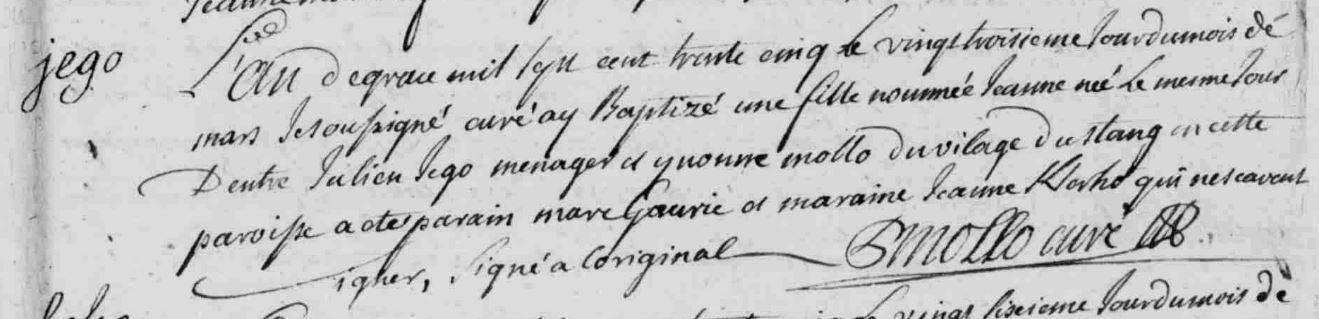 jego
L'an de grace mil sept cent trente cinq le vingt troisieme Jour du mois dé
mars Je soussigné curé ay Baptizé une fille nommée Jeanne néé Le mesme Jour
D'entre Julien Jego menager et yvonne mollo du vilage du stang en cette
paroisse a eté parain marc Gourie et maraine Jeanne qui ne scavent
signer, signé a Loriginal Mollo curé
vingt sixieme Jour du mois de